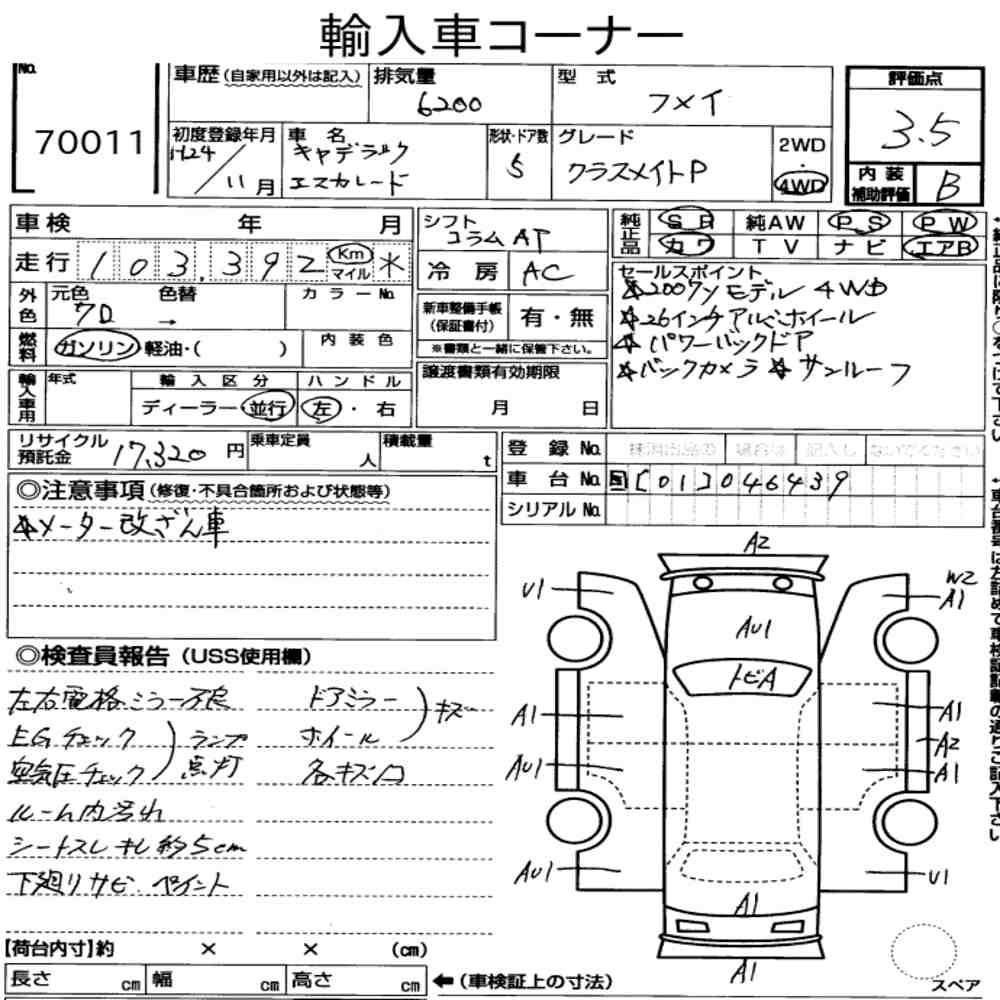 輸入車コーナー
No.
70011
車歴(自家用以外は記入)
排気量
6200
型 式
フメイ
評価点
3.5
初度登録年月
H24/11月
車 名
キャデラック
エスカレード
形状・ドア数
5
グレード
クラスメイトP
2WD
・
4WD
内装
補助評価
B
車検 年 月
走行 103,392 Km マイル ＊
シフト
コラムAT
冷房 AC
純正品
SR 純AW PS PW
カワ TV ナビ エアB
外色
元色 色替
クロ →
カラーNo.
燃料
ガソリン 軽油・( )
内装色
新車整備手帳
(保証書付)
有・無
※書類と一緒に保管下さい。
セールスポイント
☆2007yモデル 4WD
☆26インチアルミホイール
☆パワーバックドア
☆バックカメラ ☆サンルーフ
輸入車用
年式
輸入区分
ディーラー・並行
ハンドル
左・右
譲渡書類有効期限
月 日
リサイクル
預託金 17,320円
乗車定員
人
積載量
t
登録No.
車台No. 国[01]046439
シリアルNo.
◎注意事項(修復・不具合箇所および状態等)
☆メーター改ざん車
◎検査員報告(USS使用欄)
左右電格ミラー不良
EGチェック
空気圧チェック
ランプ
点灯
ルーム内汚れ
シートスレキレ約5cm
下廻りサビ ペイント
ドアミラー
ホイール
キズ
各キズ凹
A2
U1
W2
A1
AU1
トビA
A1
A1
A2
AU1
A1
AU1
U1
A1
A1
スペア
【荷台内寸】約 × × (cm)
長さ cm 幅 cm 高さ cm
←(車検証上の寸法)